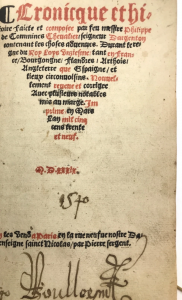 Cronicque et hi-
stoire Faicte et composee par feu messire Philippe
de Commines Chevalier seigneur Dargenton
contenant les choses advenues Durant le re-
gne du Roy Loys unziesme tant en Fran-
ce/ Bourgongne/ Flandres/ Arthois/
Angleterre que Espaigne/ et
lieux circonvoisins. Nouvel-
lement reveue et corrigee
Avec plusieurs notables
mis au marge. Im-
prime en Mars
Lan mil cinq
cens trente
et neuf.
M. D. xxxix.
1540
les vend a Paris en la rue neufve nostre Da
enseigne sainct Nicolas/ par Pierre sergent.